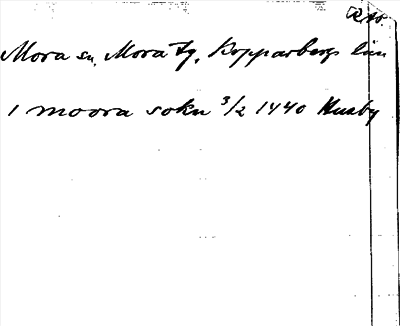 RAp.
Mora sn, Mora tg, Kopparbergs län
i moora sokn 3/2 1440 Husby